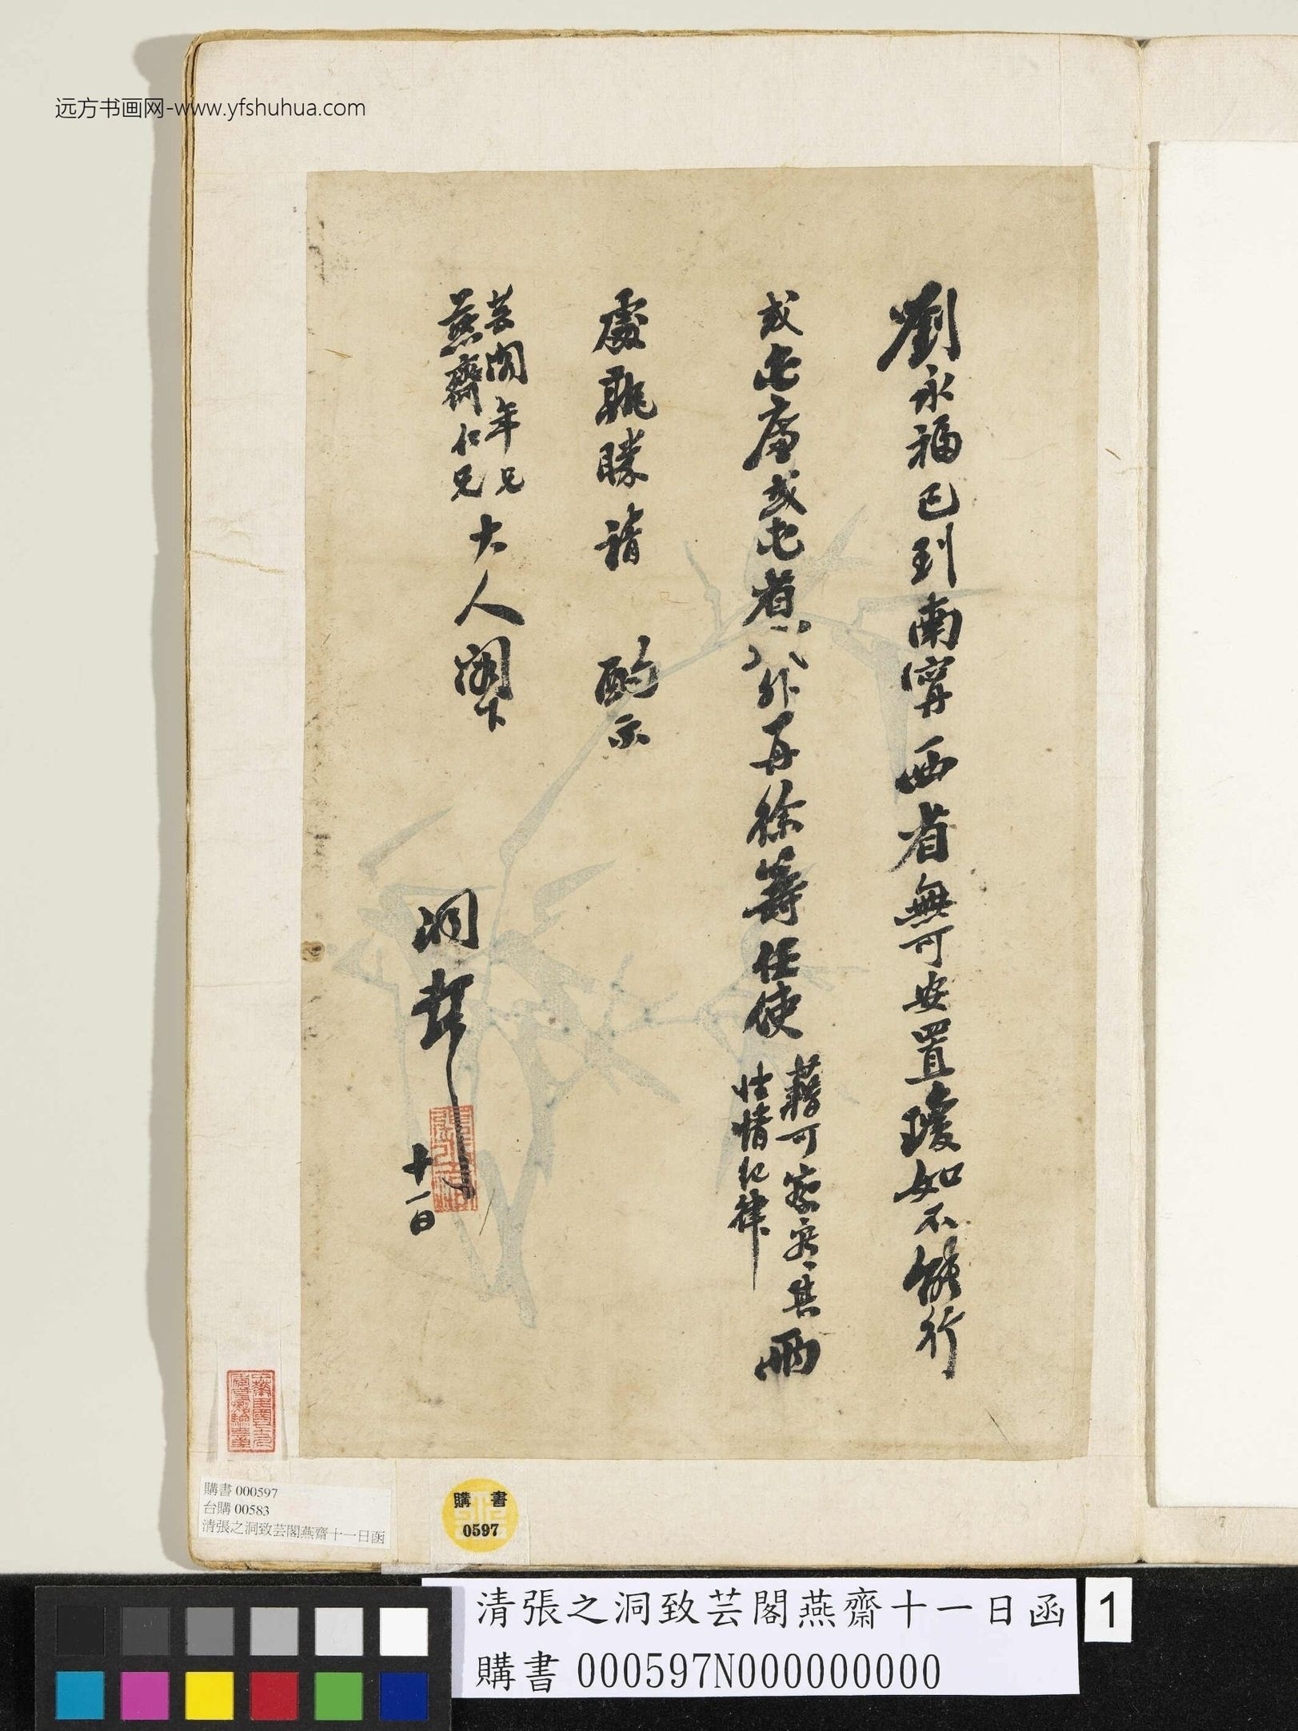 远方书画网-www.yfshuhua.com
劉永福已到南寧西省無可安置瓊如不能行
或屯廉或屯省外再徐籌任使
藉可察看其
性情紀律
兩
處孰勝請 酌示
芸閣年兄
燕齋仁兄
大人閣下
洞頓
十一日
購書 000597
台購 00583
清張之洞致芸閣燕齋十一日函
購書
0597
清張之洞致芸閣燕齋十一日函
1
購書 000597N000000000